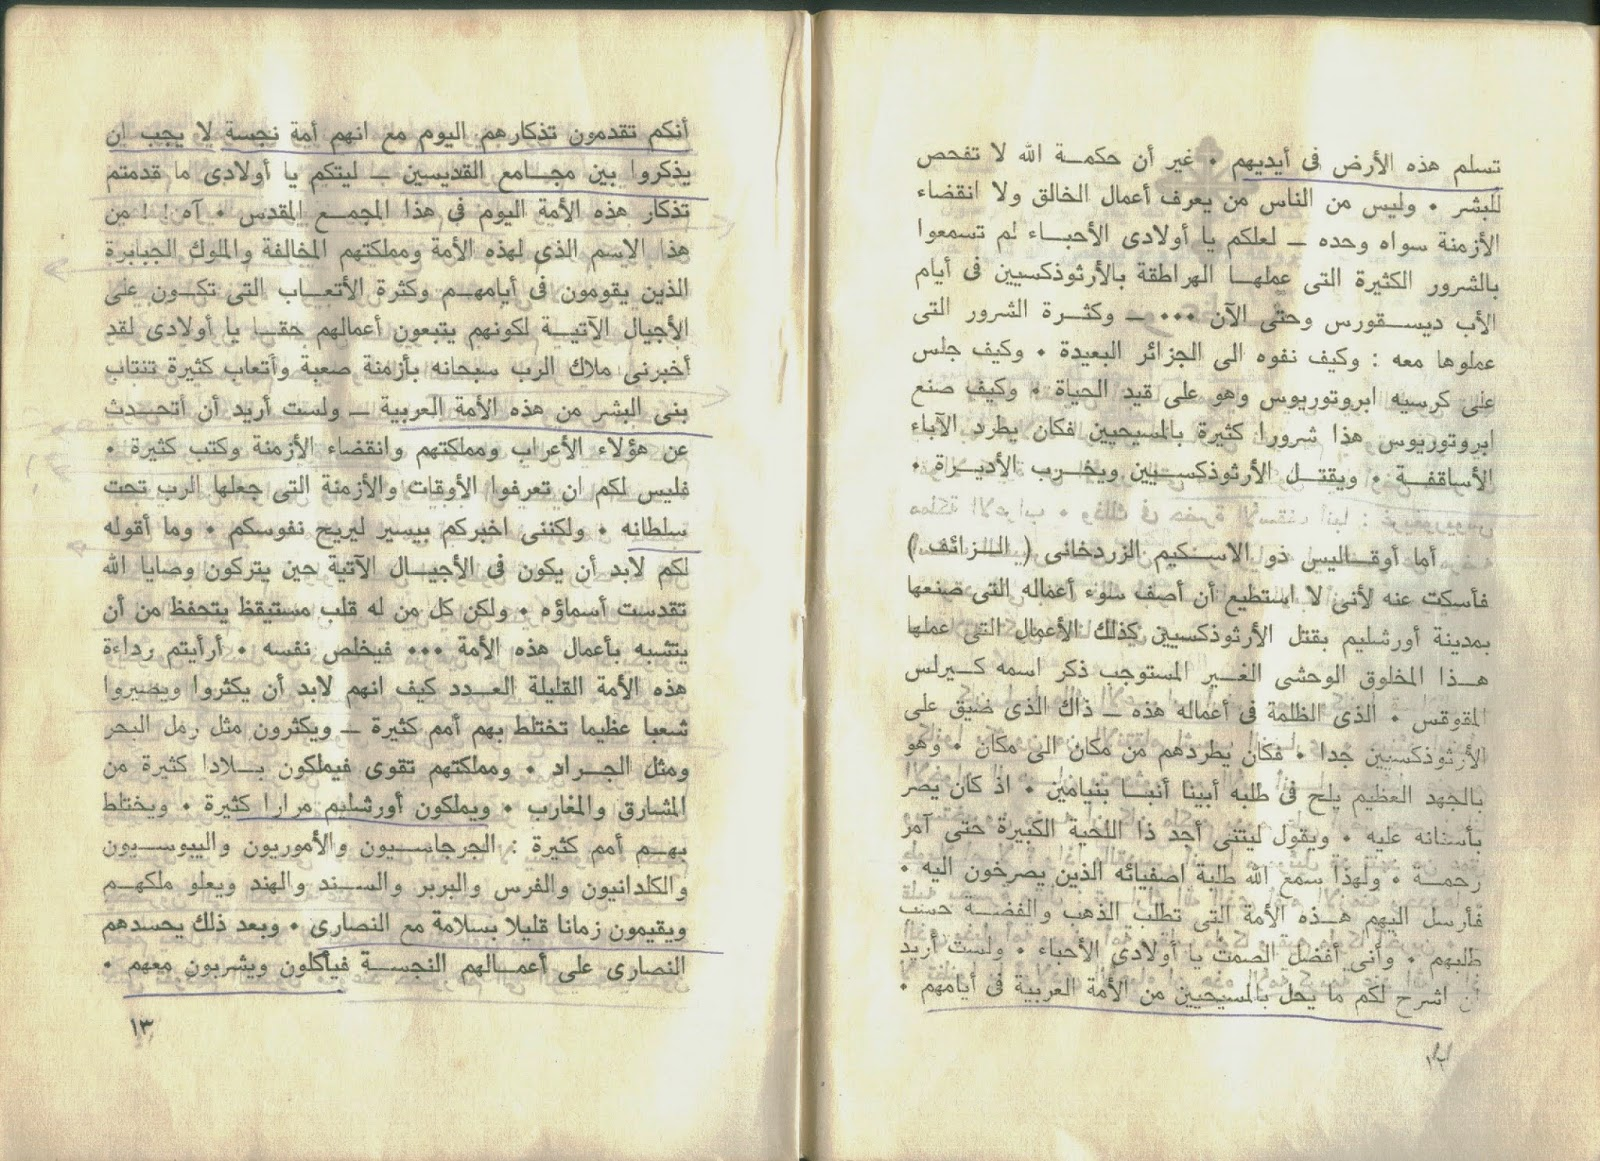 تسلم هذه الأرض فى أيديهم • غير أن حكمـــة الله لا تفحص
للبشر • وليس من الناس من يعرف أعمال الخالق ولا انقضاء
الأزمنة سواه وحده ــ لعلكم يا أولادى الأحبـــاء لم تسمعوا
بالشرور الكثيرة التى عملهـــا الهراطقة بالأرثوذكسيين فى أيام
الأب ديســـقورس وحتى الآن ••• ــ وكثـــرة الشرور التى
عملوها معه : وكيف نفوه الى الجزائر البعيدة • وكيف جلس
على كرسيه ابروتوريوس وهو على قيد الحياة • وكيف صنع
ابروتوريوس هذا شرورا كثيرة بالمسيحيين فكان يطرد الآباء
الأساقفـــة • ويقتـــل الأرثوذكســـيين ويخـــرب الأديـــرة •
أما أوقـــاليس ذو الاســـكيم الزردخانى ( الـــزائف )
فأسكت عنه لأنى لا استطيع أن أصف سوء أعماله التى صنعها
بمدينة أورشليم بقتل الأرثوذكسيين كذلك الأعمال التى عملها
هـــذا المخلوق الوحشى الغـــير المستوجب ذكر اسمه كـــيرلس
المقوقس • الذى الظلمة فى أعماله هذه ــ ذاك الذى ضيق على
الأرثوذكسيين جدا • فكان يطردهم من مكان الى مكان • وهو
بالجهد العظيم يلح فى طلبه أبينا أنبـــا بنيامين • اذ كان يصر
بأسنانه عليه • ويقول ليتنى أجد ذا اللحية الكبيرة حتى آمر
رجمـــه • ولهذا سمع الله طلبة اصفيائه الذين يصرخون اليه •
فأرسل اليهم هـــذه الأمة التى تطلب الذهب والفضـــة حسب
طلبهم • وأنى أفضل الصمت يا أولادى الأحباء • ولست أريد
ان اشرح لكم ما يحل بالمسيحيين من الأمة العربية فى أيامهم •
أنكم تقدمون تذكارهم اليوم مع انهم أمة نجسة لا يجب ان
يذكروا بين مجـــامع القديسين ــ ليتكم يا أولادى ما قدمتم
تذكار هذه الأمة اليوم فى هذا المجمـــع المقدس • آه ! ! من
هذا الاسم الذى لهذه الأمة ومملكتهم المخالفة والملوك الجبابرة
الذين يقومون فى أيامهـــم وكثرة الأتعـــاب التى تكـــون على
الأجيال الآتيـــة لكونهم يتبعون أعمالهم حقـــا يا أولادى لقد
أخبرنى ملاك الرب سبحانه بأزمنة صعبة وأتعاب كثيرة تنتاب
بنى البشر من هذه الأمة العربية ــ ولست أريد أن أتحـــدث
عن هؤلاء الأعراب ومملكتهم وانقضاء الأزمنة وكتب كثيرة •
فليس لكم ان تعرفوا الأوقات والأزمنة التى جعلها الرب تحت
سلطانه • ولكننى اخبركم بيسير ليريح نفوسكم • وما أقوله
لكم لابد أن يكون فى الأجيـــال الآتية حين يتركون وصايا الله
تقدست أسماؤه • ولكن كل من له قلب مستيقظ يتحفظ من أن
يتشبه بأعمال هذه الأمة ••• فيخلص نفسه • أرأيتم رداءة
هذه الأمة القليلة العـــدد كيف انهم لابد أن يكثروا ويصيروا
شعبا عظيما تختلط بهم أمم كثيرة ــ ويكثرون مثل رمل البحر
ومثل الجـــراد • ومملكتهم تقوى فيملكون بـــلادا كثيرة من
المشارق والمغارب • ويملكون أورشليم مرارا كثيرة • ويختلط
بهـــم أمم كثيرة : الجرجاســـيون والأموريون واليبوســـيون
والكلدانيون والفرس والبربر والســـند والهند ويعلو ملكهـــم
ويقيمون زمانا قليلا بسلامة مع النصارى • وبعد ذلك يحسدهم
النصارى على أعمـــالهم النجســـة فيأكلون ويشربون معهم •
١٣